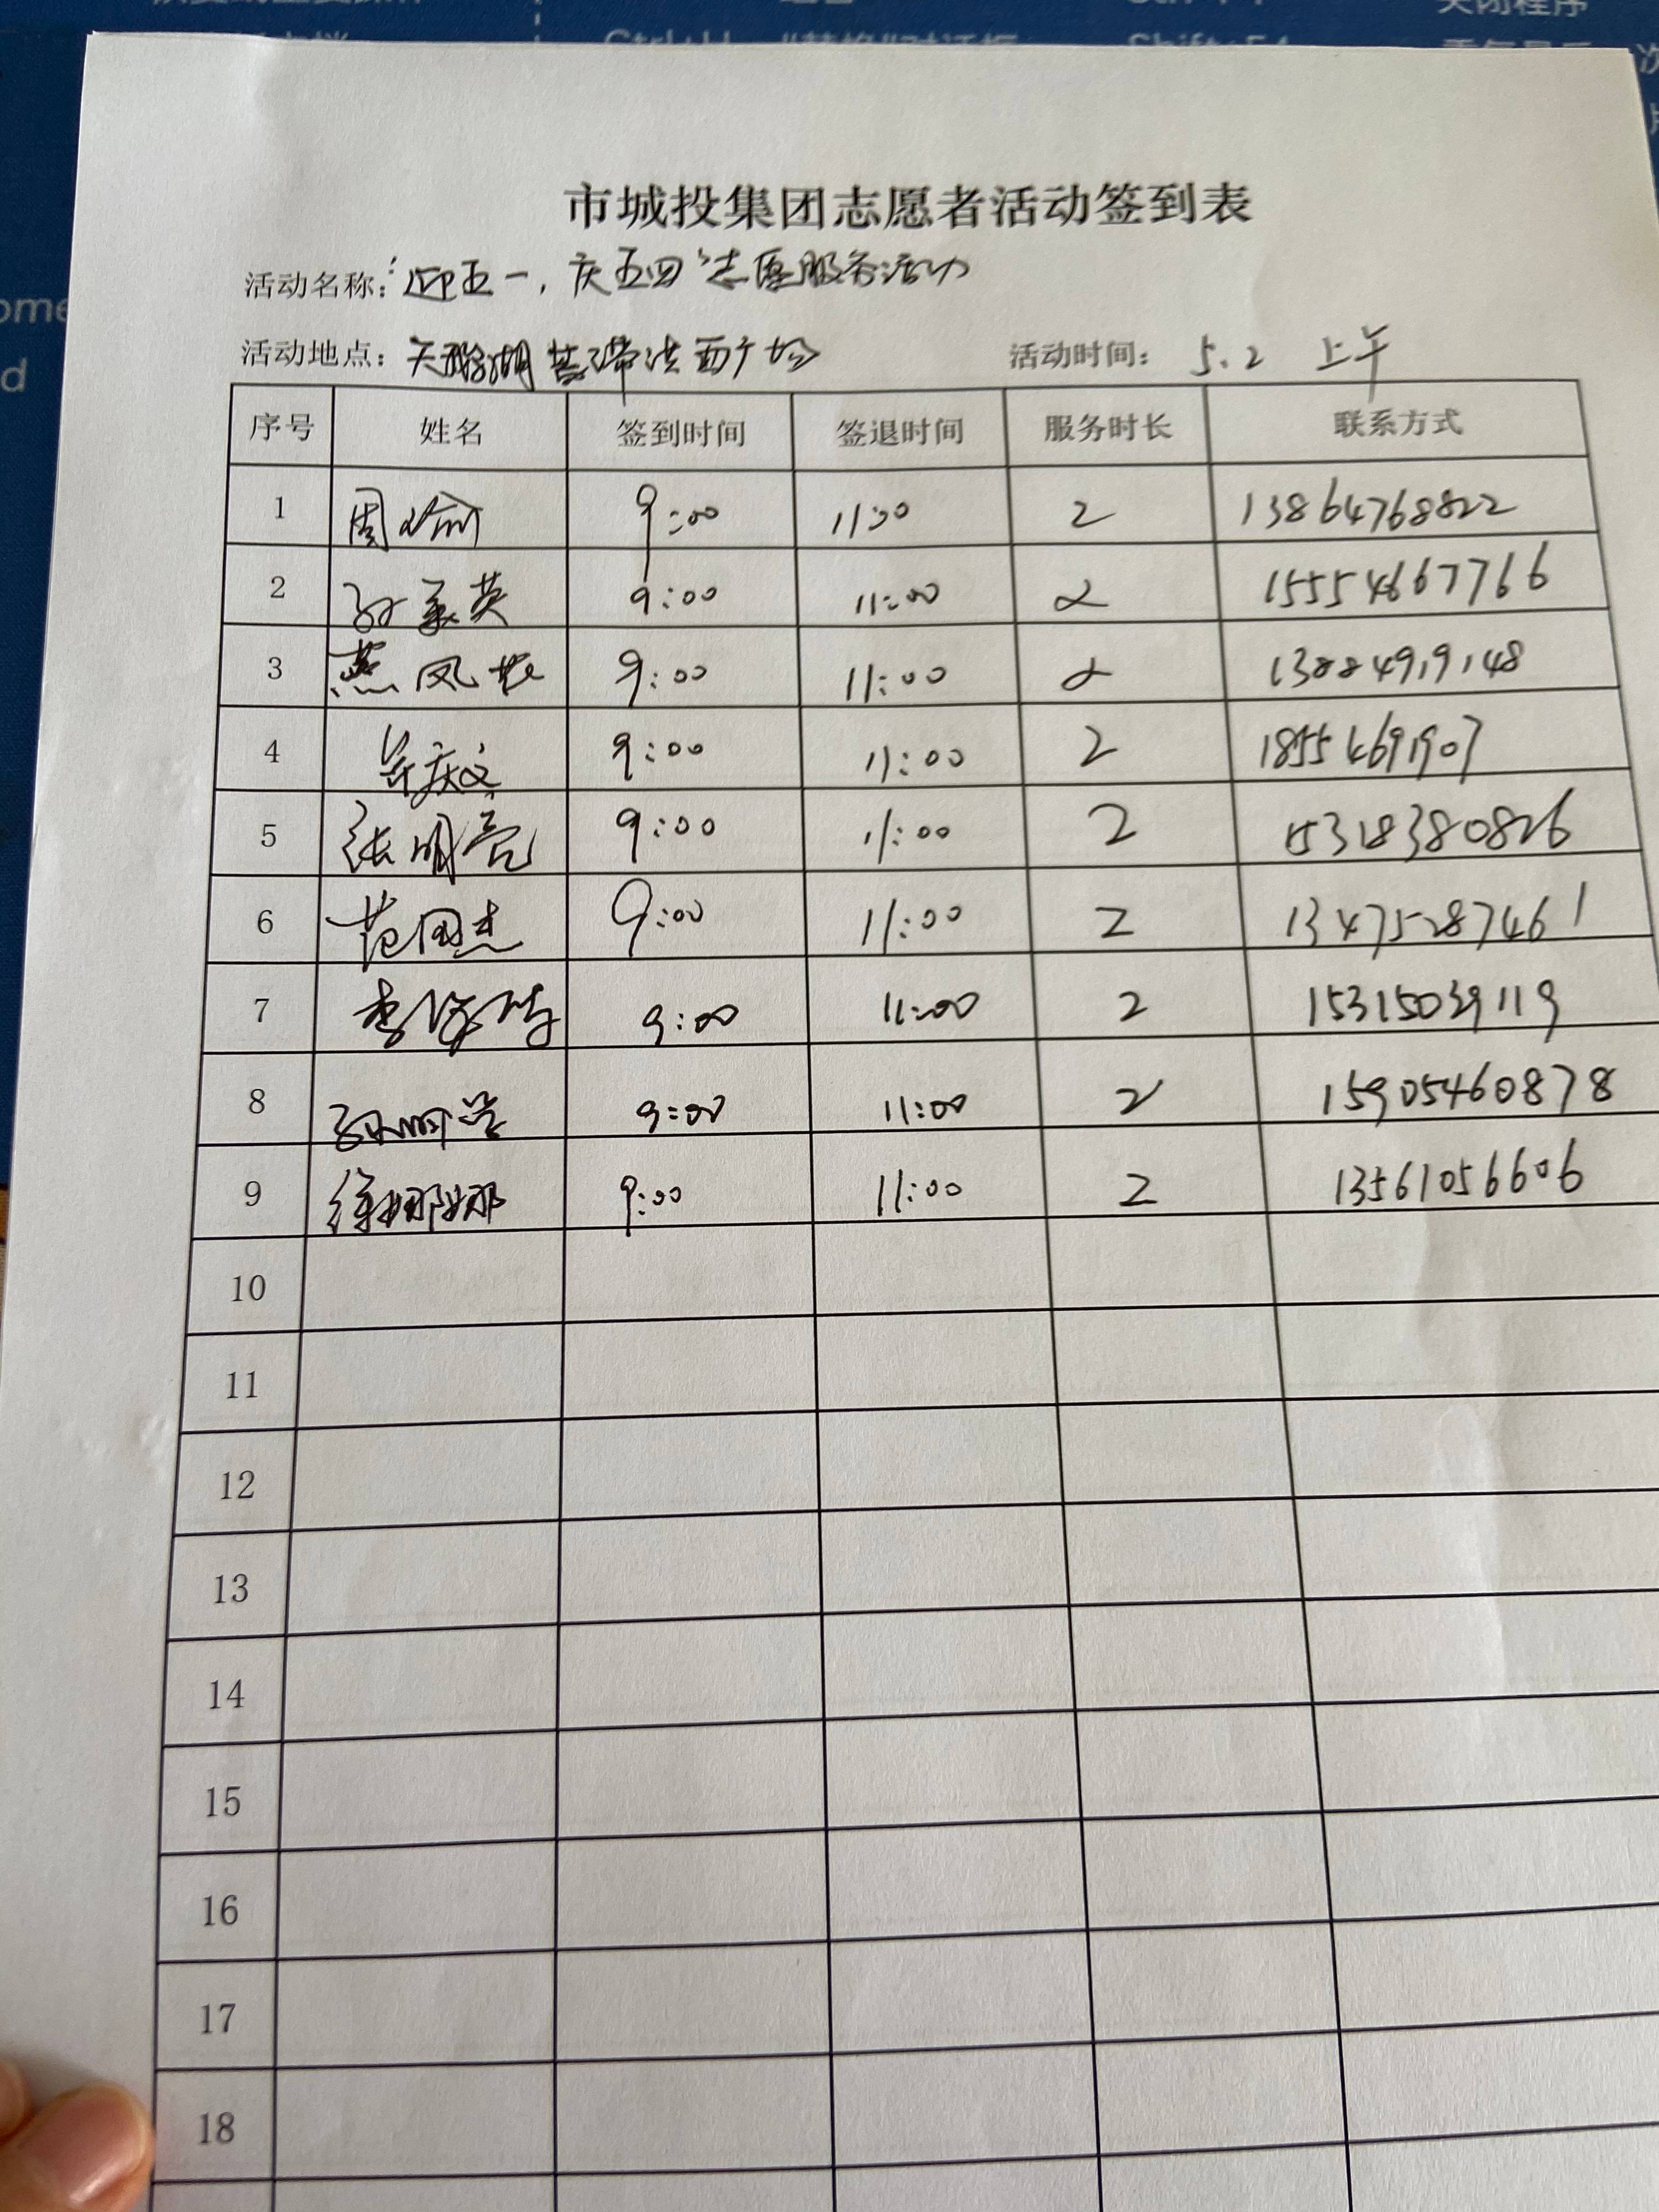 Shift+F4
关闭程序
ome
d
市城投集团志愿者活动签到表
活动名称:“迎五一,庆五四”志愿服务活动
活动地点: 天鹅湖 西广场 活动时间: 5.2 上午
序号 姓名 签到时间 签退时间 服务时长 联系方式
1 周瑜 9:00 11:00 2 13864768822
2 孙秀英 9:00 11:00 2 15554667766
3 燕凤花 9:00 11:00 2 13884919148
4 庆文 9:00 11:00 2 18554691907
5 张明亮 9:00 11:00 2 15318380826
6 范国杰 9:00 11:00 2 13475287461
7 李 9:00 11:00 2 15315039119
8 孙 9:00 11:00 2 15905460878
9 徐娜娜 9:00 11:00 2 13561056606
10
11
12
13
14
15
16
17
18